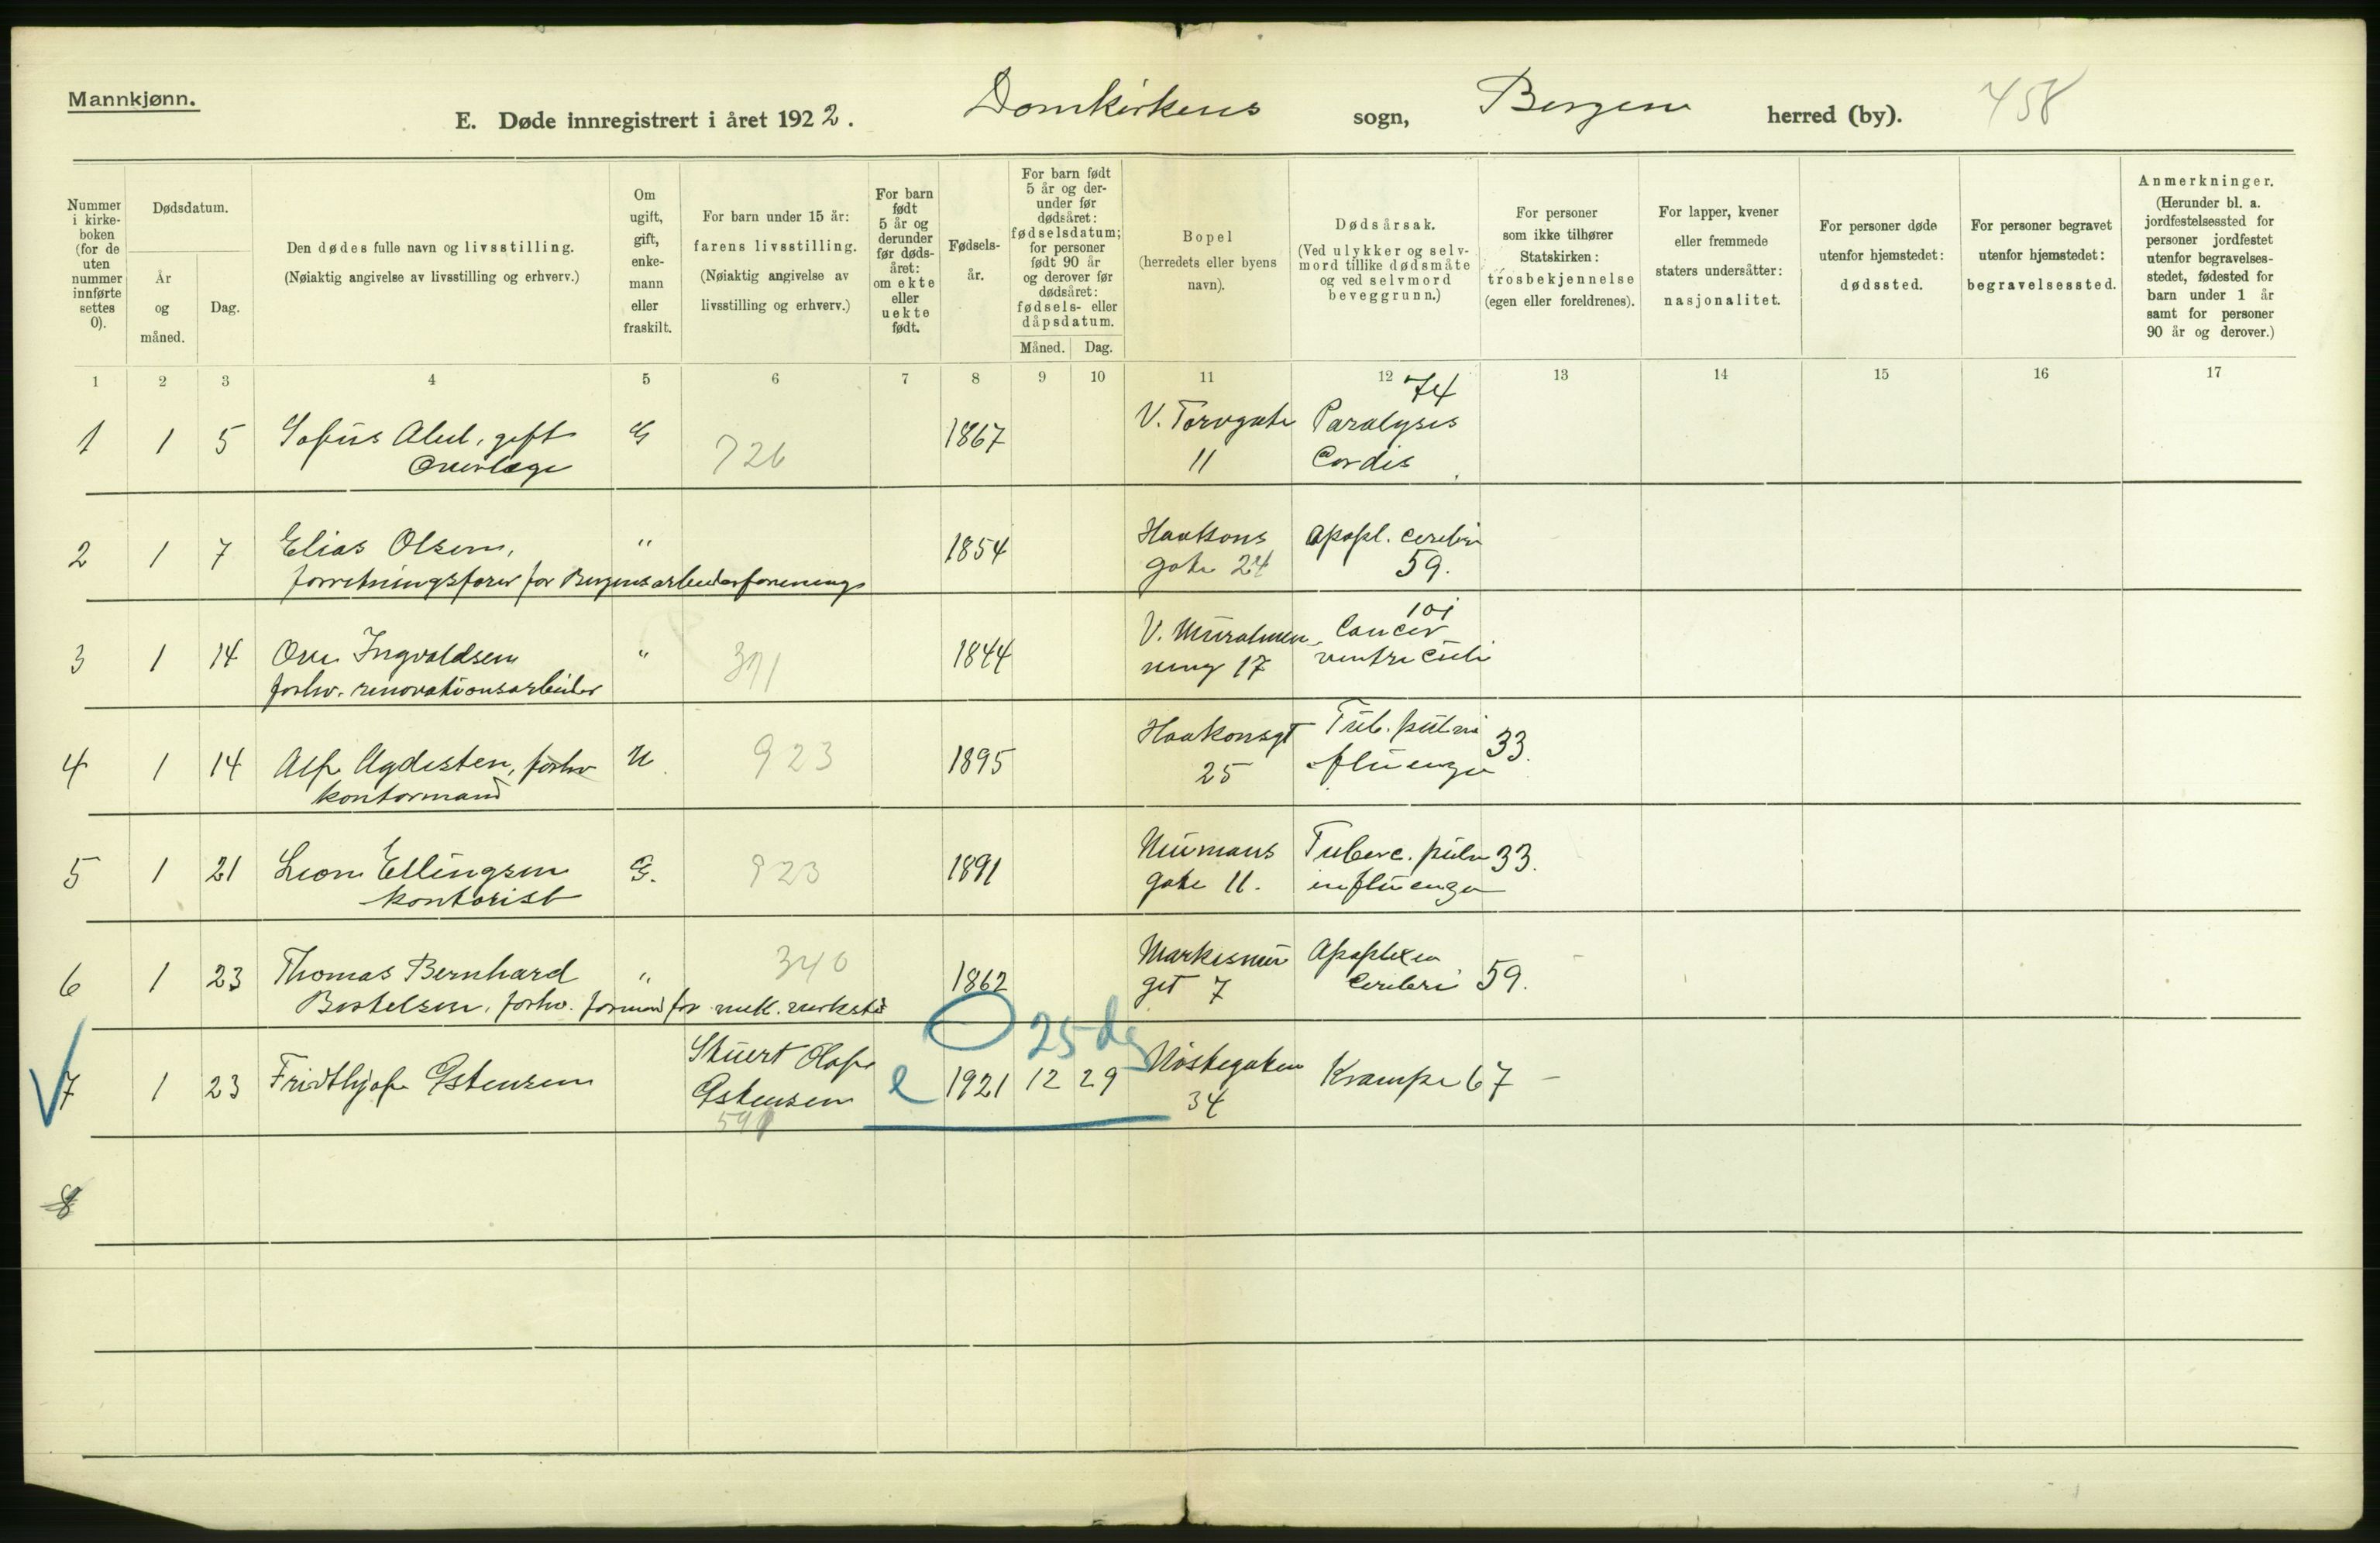 Mannkjønn.
E. Døde innregistrert i året 1922. Domkirkens sogn, Bergen herred (by). 458
Nummer i kirke-boken (for de uten nummer innførte settes 0).
Dødsdatum.
År og måned.
Dag.
Den dødes fulle navn og livsstilling.
(Nøiaktig angivelse av livsstilling og erhverv.)
Om ugift, gift, enke-mann eller fraskilt.
For barn under 15 år:
farens livsstilling.
(Nøiaktig angivelse av livsstilling og erhverv.)
For barn født 5 år og derunder før døds-året: om ekte eller uekte født.
Fødsels-år.
For barn født 5 år og der-under før dødsåret: fødselsdatum; for personer født 90 år og derover før dødsåret: fødsels- eller dåpsdatum.
Måned. Dag.
Bopel
(herredets eller byens navn).
Dødsårsak.
(Ved ulykker og selv-mord tillike dødsmåte og ved selvmord beveggrunn.)
For personer som ikke tilhører Statskirken: trosbekjennelse (egen eller foreldrenes).
For lapper, kvener eller fremmede staters undersåtter: nasjonalitet.
For personer døde utenfor hjemstedet: dødssted.
For personer begravet utenfor hjemstedet: begravelsessted.
Anmerkninger.
(Herunder bl. a. jordfestelsessted for personer jordfestet utenfor begravelses-stedet, fødested for barn under 1 år samt for personer 90 år og derover.)
1 2 3 4 5 6 7 8 9 10 11 12 13 14 15 16 17
74
1 1 5 Sofus gift G 726 1867 V. Torvgate Paralysis
Overlæge 11 Cordis
2 1 7 Elias Olsen, " 1854 Haakons apopl. cerebri
forretningsfører for Bergens arbeiderforening gate 24 59.
101
3 1 14 Ove Ingvaldsen " 391 1844 V. Muralmen Cancer
forhv. renovationsarbeider ning 17 ventriculi
4 1 14 Alf Agdesten, forhv U 923 1895 Haakonsgt Tub. pulm 33.
kontormand 25
5 1 21 Leon Ellingsen G. 923 1891 Neumans Tuberc. pulm 33.
kontorist gate 11. influenza
6 1 23 Thomas Bernhard " 340 1862 Markesmu Apoplexia
Bertelsen, forhv. formand for mek. verksted get 7 Cerebri 59.
25 dg
7 1 23 Fridthjof Østensen Stuert Olaf e 1921 12 29 Nøstegaten Krampe 67 –
Østensen 34
591
8